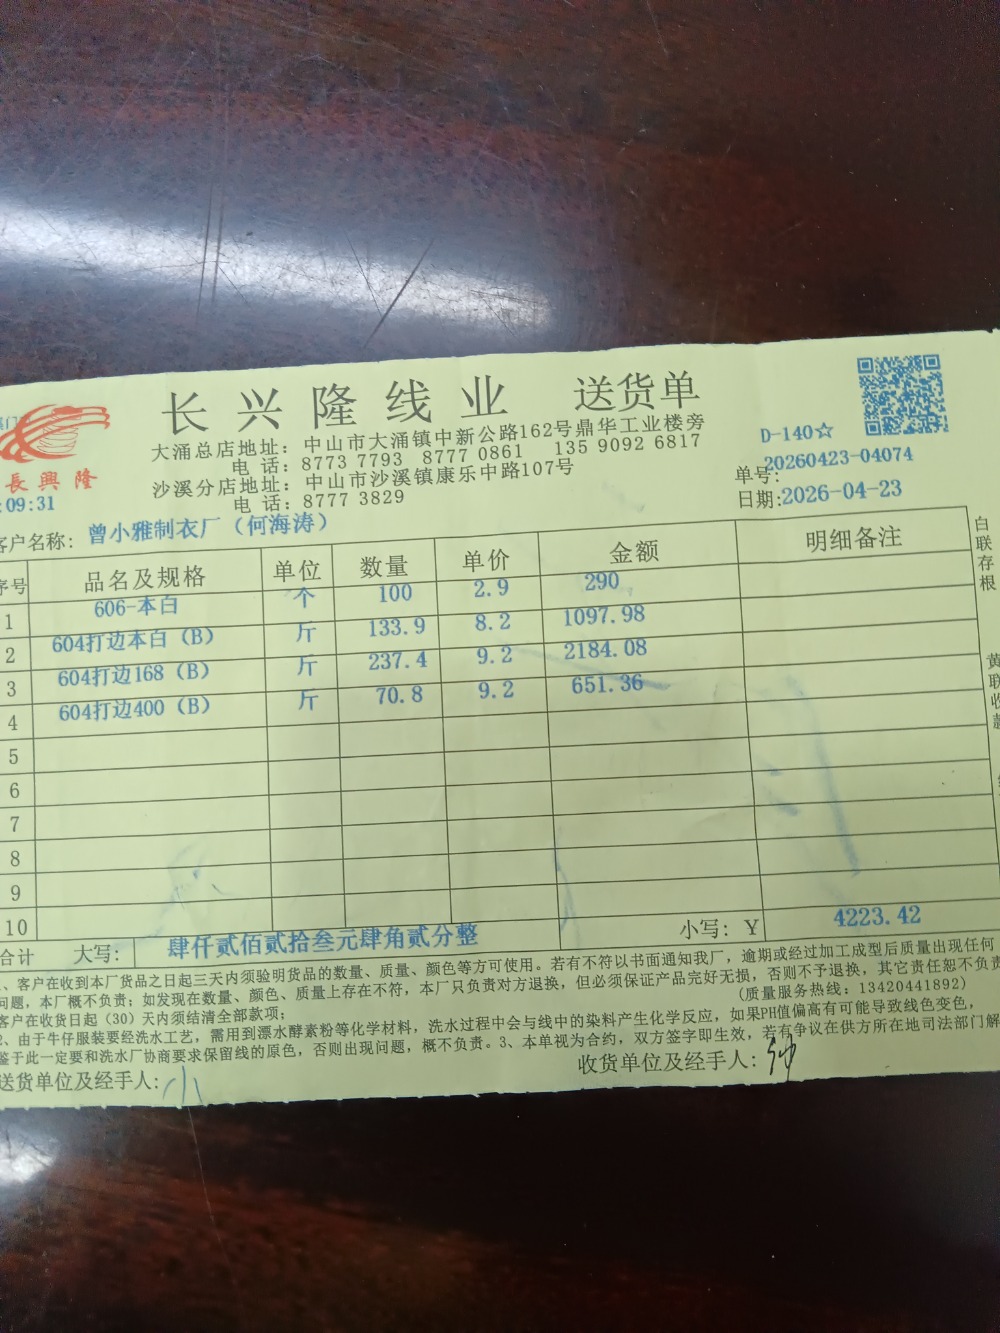 长兴隆线业 送货单
大涌总店地址：中山市大涌镇中新公路162号鼎华工业楼旁
电 话：8773 7793 8777 0861 135 9092 6817
沙溪分店地址：中山市沙溪镇康乐中路107号
电 话：8777 3829
長興隆
:09:31
D-140☆
单号:20260423-04074
日期:2026-04-23
客户名称: 曾小雅制衣厂（何海涛）
序号 品名及规格 单位 数量 单价 金额 明细备注
1 606-本白 个 100 2.9 290
2 604打边本白（B） 斤 133.9 8.2 1097.98
3 604打边168（B） 斤 237.4 9.2 2184.08
4 604打边400（B） 斤 70.8 9.2 651.36
5
6
7
8
9
10
合计 大写: 肆仟贰佰贰拾叁元肆角贰分整 小写: ¥ 4223.42
、客户在收到本厂货品之日起三天内须验明货品的数量、质量、颜色等方可使用。若有不符以书面通知我厂，逾期或经过加工成型后质量出现任何
问题，本厂概不负责；如发现在数量、颜色、质量上存在不符，本厂只负责对方退换，但必须保证产品完好无损，否则不予退换，其它责任恕不负责
客户在收货日起（30）天内须结清全部款项；
(质量服务热线：13420441892)
2、由于牛仔服装要经洗水工艺，需用到漂水酵素粉等化学材料，洗水过程中会与线中的染料产生化学反应，如果PH值偏高有可能导致线色变色，
鉴于此一定要和洗水厂协商要求保留线的原色，否则出现问题，概不负责。3、本单视为合约，双方签字即生效，若有争议在供方所在地司法部门解
送货单位及经手人: 小
收货单位及经手人:
白联存根
黄联收款